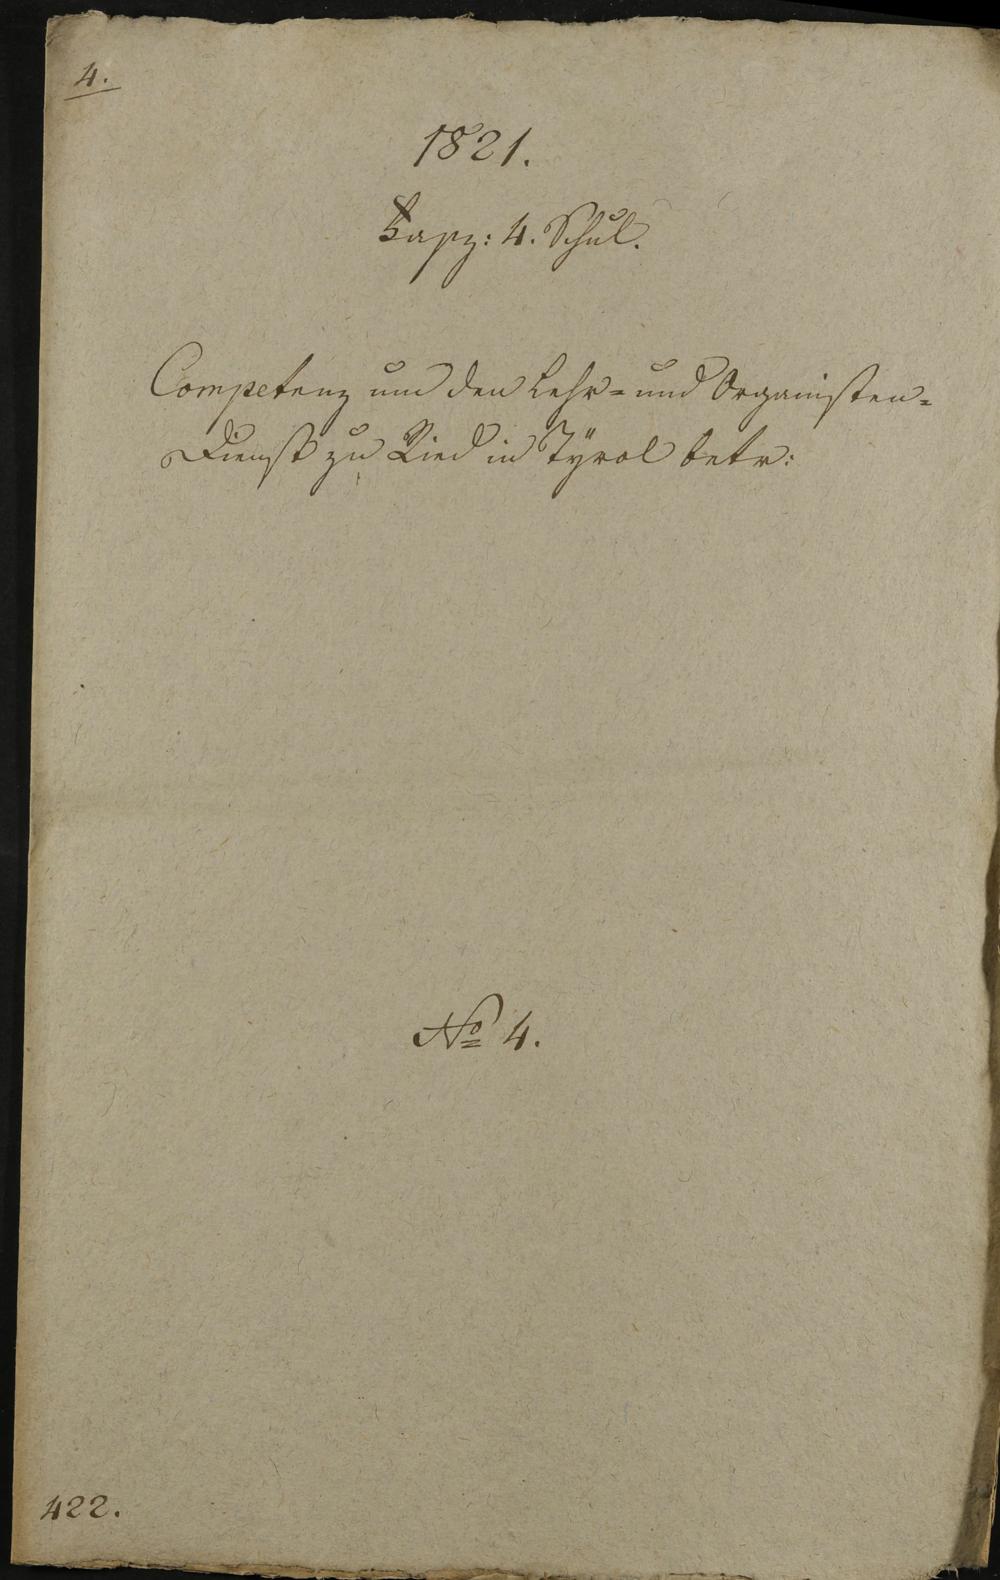 4.
1821.
Fasz: 4. Schul.
Competenz um den Lehr= und Organisten=
Dienst zu Ried in Tÿrol betr:
No 4.
422.